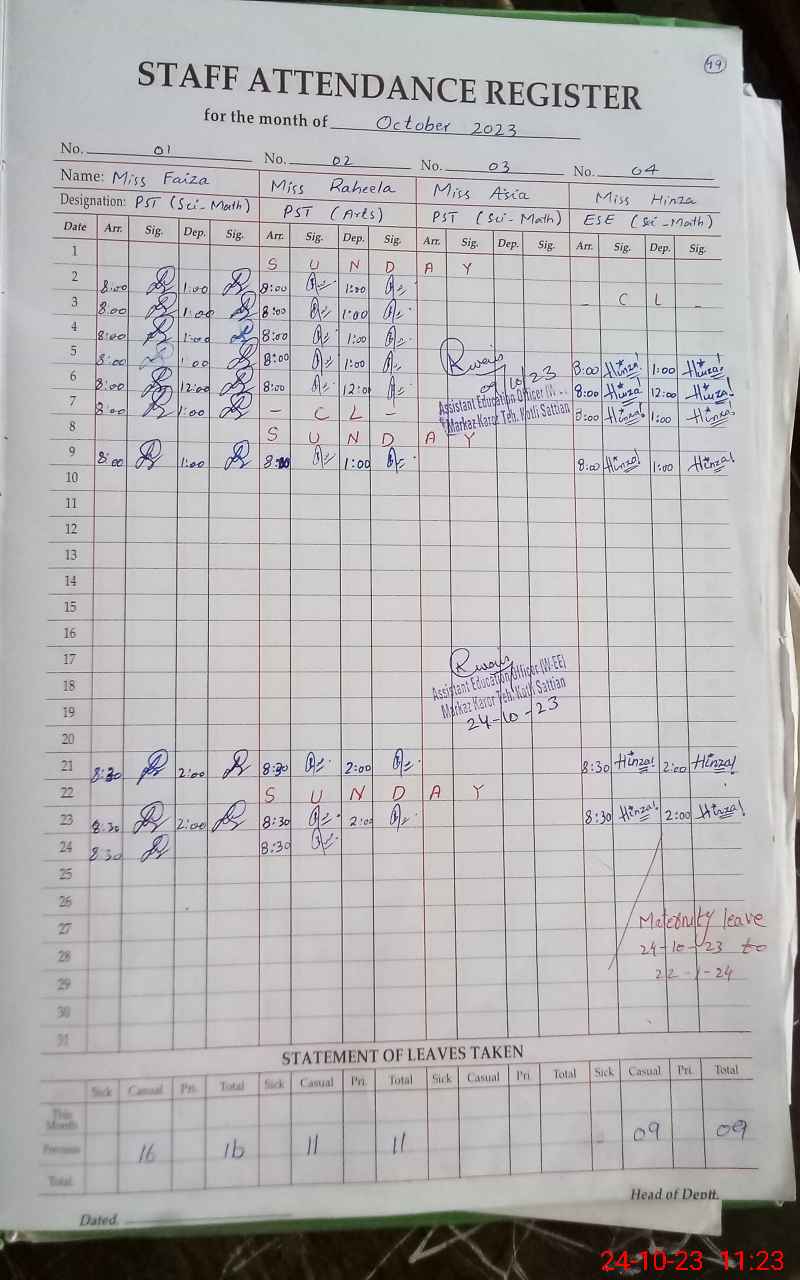 49
STAFF ATTENDANCE REGISTER
for the month of October 2023
No. 01 No. 02 No. 03 No. 04
Name: Miss Faiza Miss Raheela Miss Asia Miss Hinza
Designation: PST (Sci-Math) PST (Arts) PST (Sci-Math) ESE (Sci-Math)
Date Arr. Sig. Dep. Sig. Arr. Sig. Dep. Sig. Arr. Sig. Dep. Sig. Arr. Sig. Dep. Sig.
1 S U N D A Y
2 8:00 1:00 8:00 1:00 - C L -
3 8:00 1:00 8:00 1:00
4 8:00 1:00 8:00 1:00
5 8:00 1:00 8:00 1:00 8:00 Hinza! 1:00 Hinza!
6 8:00 12:00 8:00 12:00 8:00 Hinza 12:00 Hinza!
7 8:00 1:00 - C L - 8:00 Hinza! 1:00 Hinza!
Rwais
09/10/23
Assistant Education Officer (W
Markaz Karor Teh. Kotli Sattian
8 S U N D A Y
9 8:00 1:00 8:00 1:00 8:00 Hinza! 1:00 Hinza!
10
11
12
13
14
15
16
17
18
19
Rwais
Assistant Education Officer (W-EE)
Markaz Karor Teh. Kotli Sattian
24-10-23
20
21 8:30 2:00 8:30 2:00 8:30 Hinza! 2:00 Hinza!
22 S U N D A Y
23 8:30 2:00 8:30 2:00 8:30 Hinza! 2:00 Hinza!
24 8:30 8:30
25
26
27
28
29
30
31
Maternity leave
24-10-23 to
22-1-24
STATEMENT OF LEAVES TAKEN
Sick Casual Pri. Total Sick Casual Pri. Total Sick Casual Pri. Total Sick Casual Pri. Total
This Month
Previous 16 16 11 11 09 09
Total
Head of Deptt.
Dated.
24-10-23 11:23